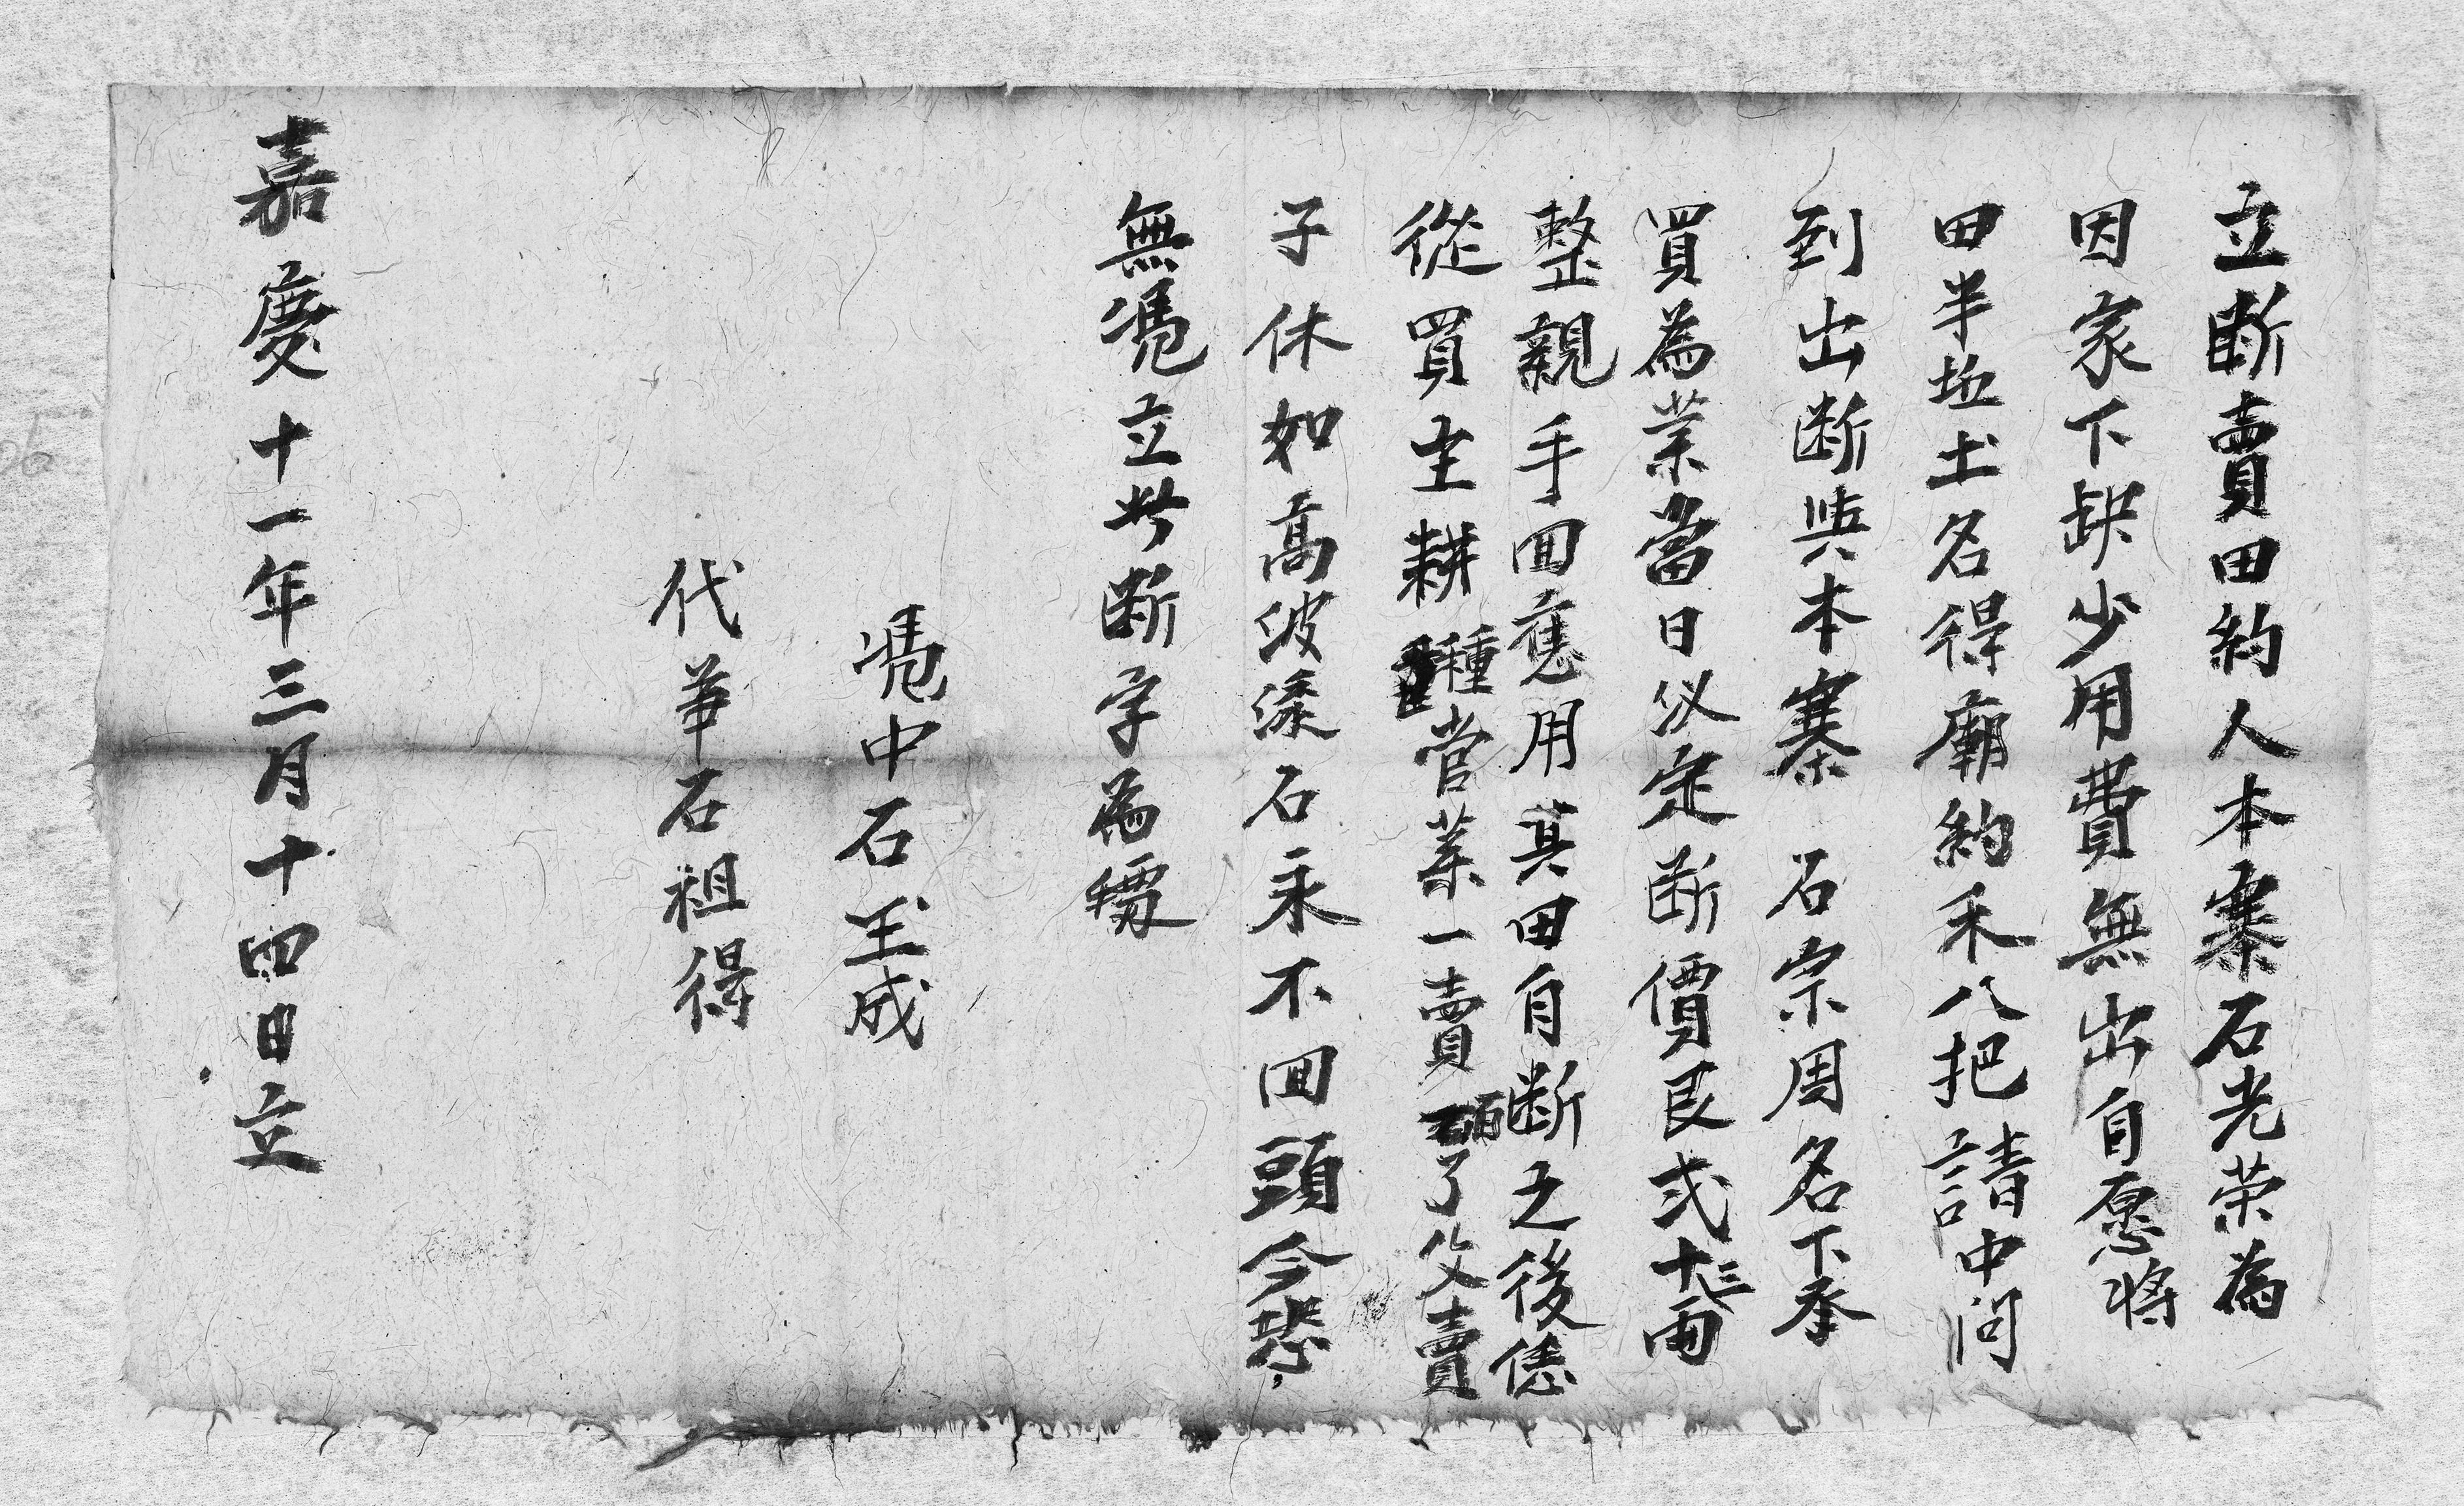 立断賣田約人本寨石光荣為
因家下缺少用費無出自愿將
田半坵土名得廟約禾八把請中问
到出断與本寨石宗周名下承
買為業當日议定断價艮弍十三两
整親手囬應用其田自断之後恁
從買主耕種営業一賣百了父賣
子休如髙波漆石永不囬頭今恐
無凴立此断字為㯽
凴中石玉成
代筆石祖得
嘉慶十一年三月十四日立